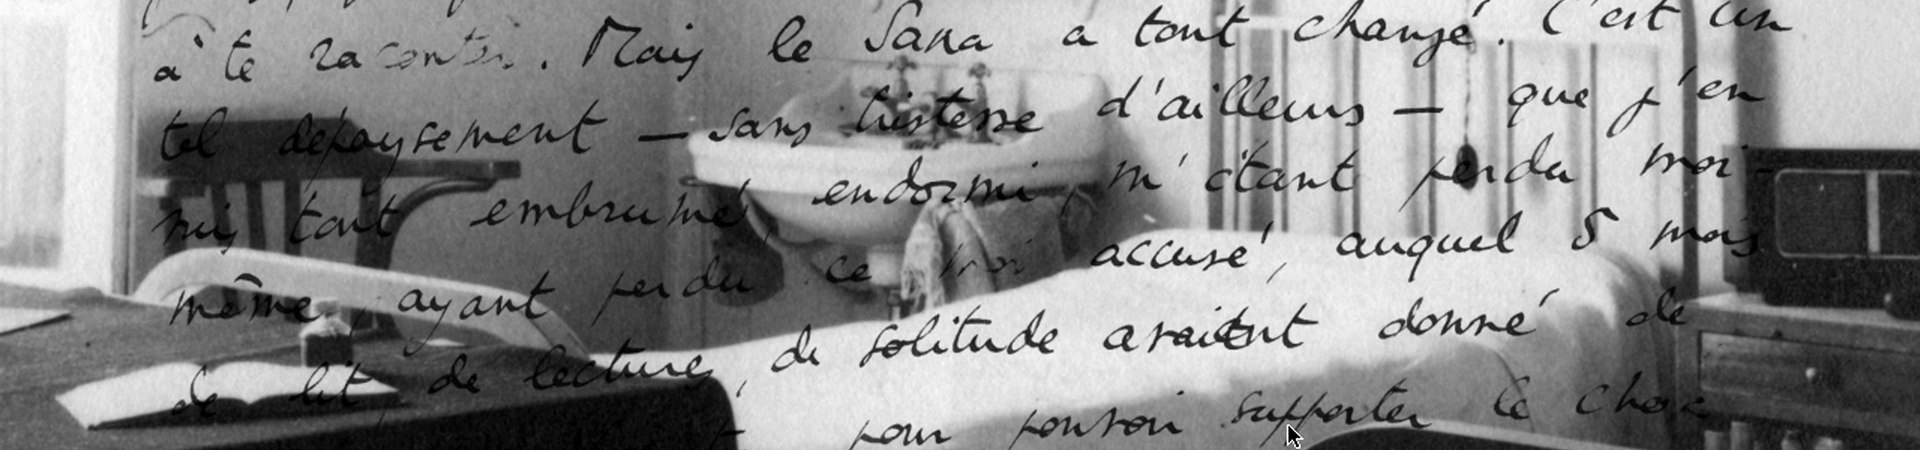 à te raconter. Mais le Sana a tout changé. C'est un
tel dépaysement — sans tristesse d'ailleurs — que j'en
suis tout embrumé, endormi, m'étant perdu moi-
même, ayant perdu ce moi accusé, auquel 5 mois
de lit, de lecture, de solitude avaient donné de
pour pouvoir supporter le choc